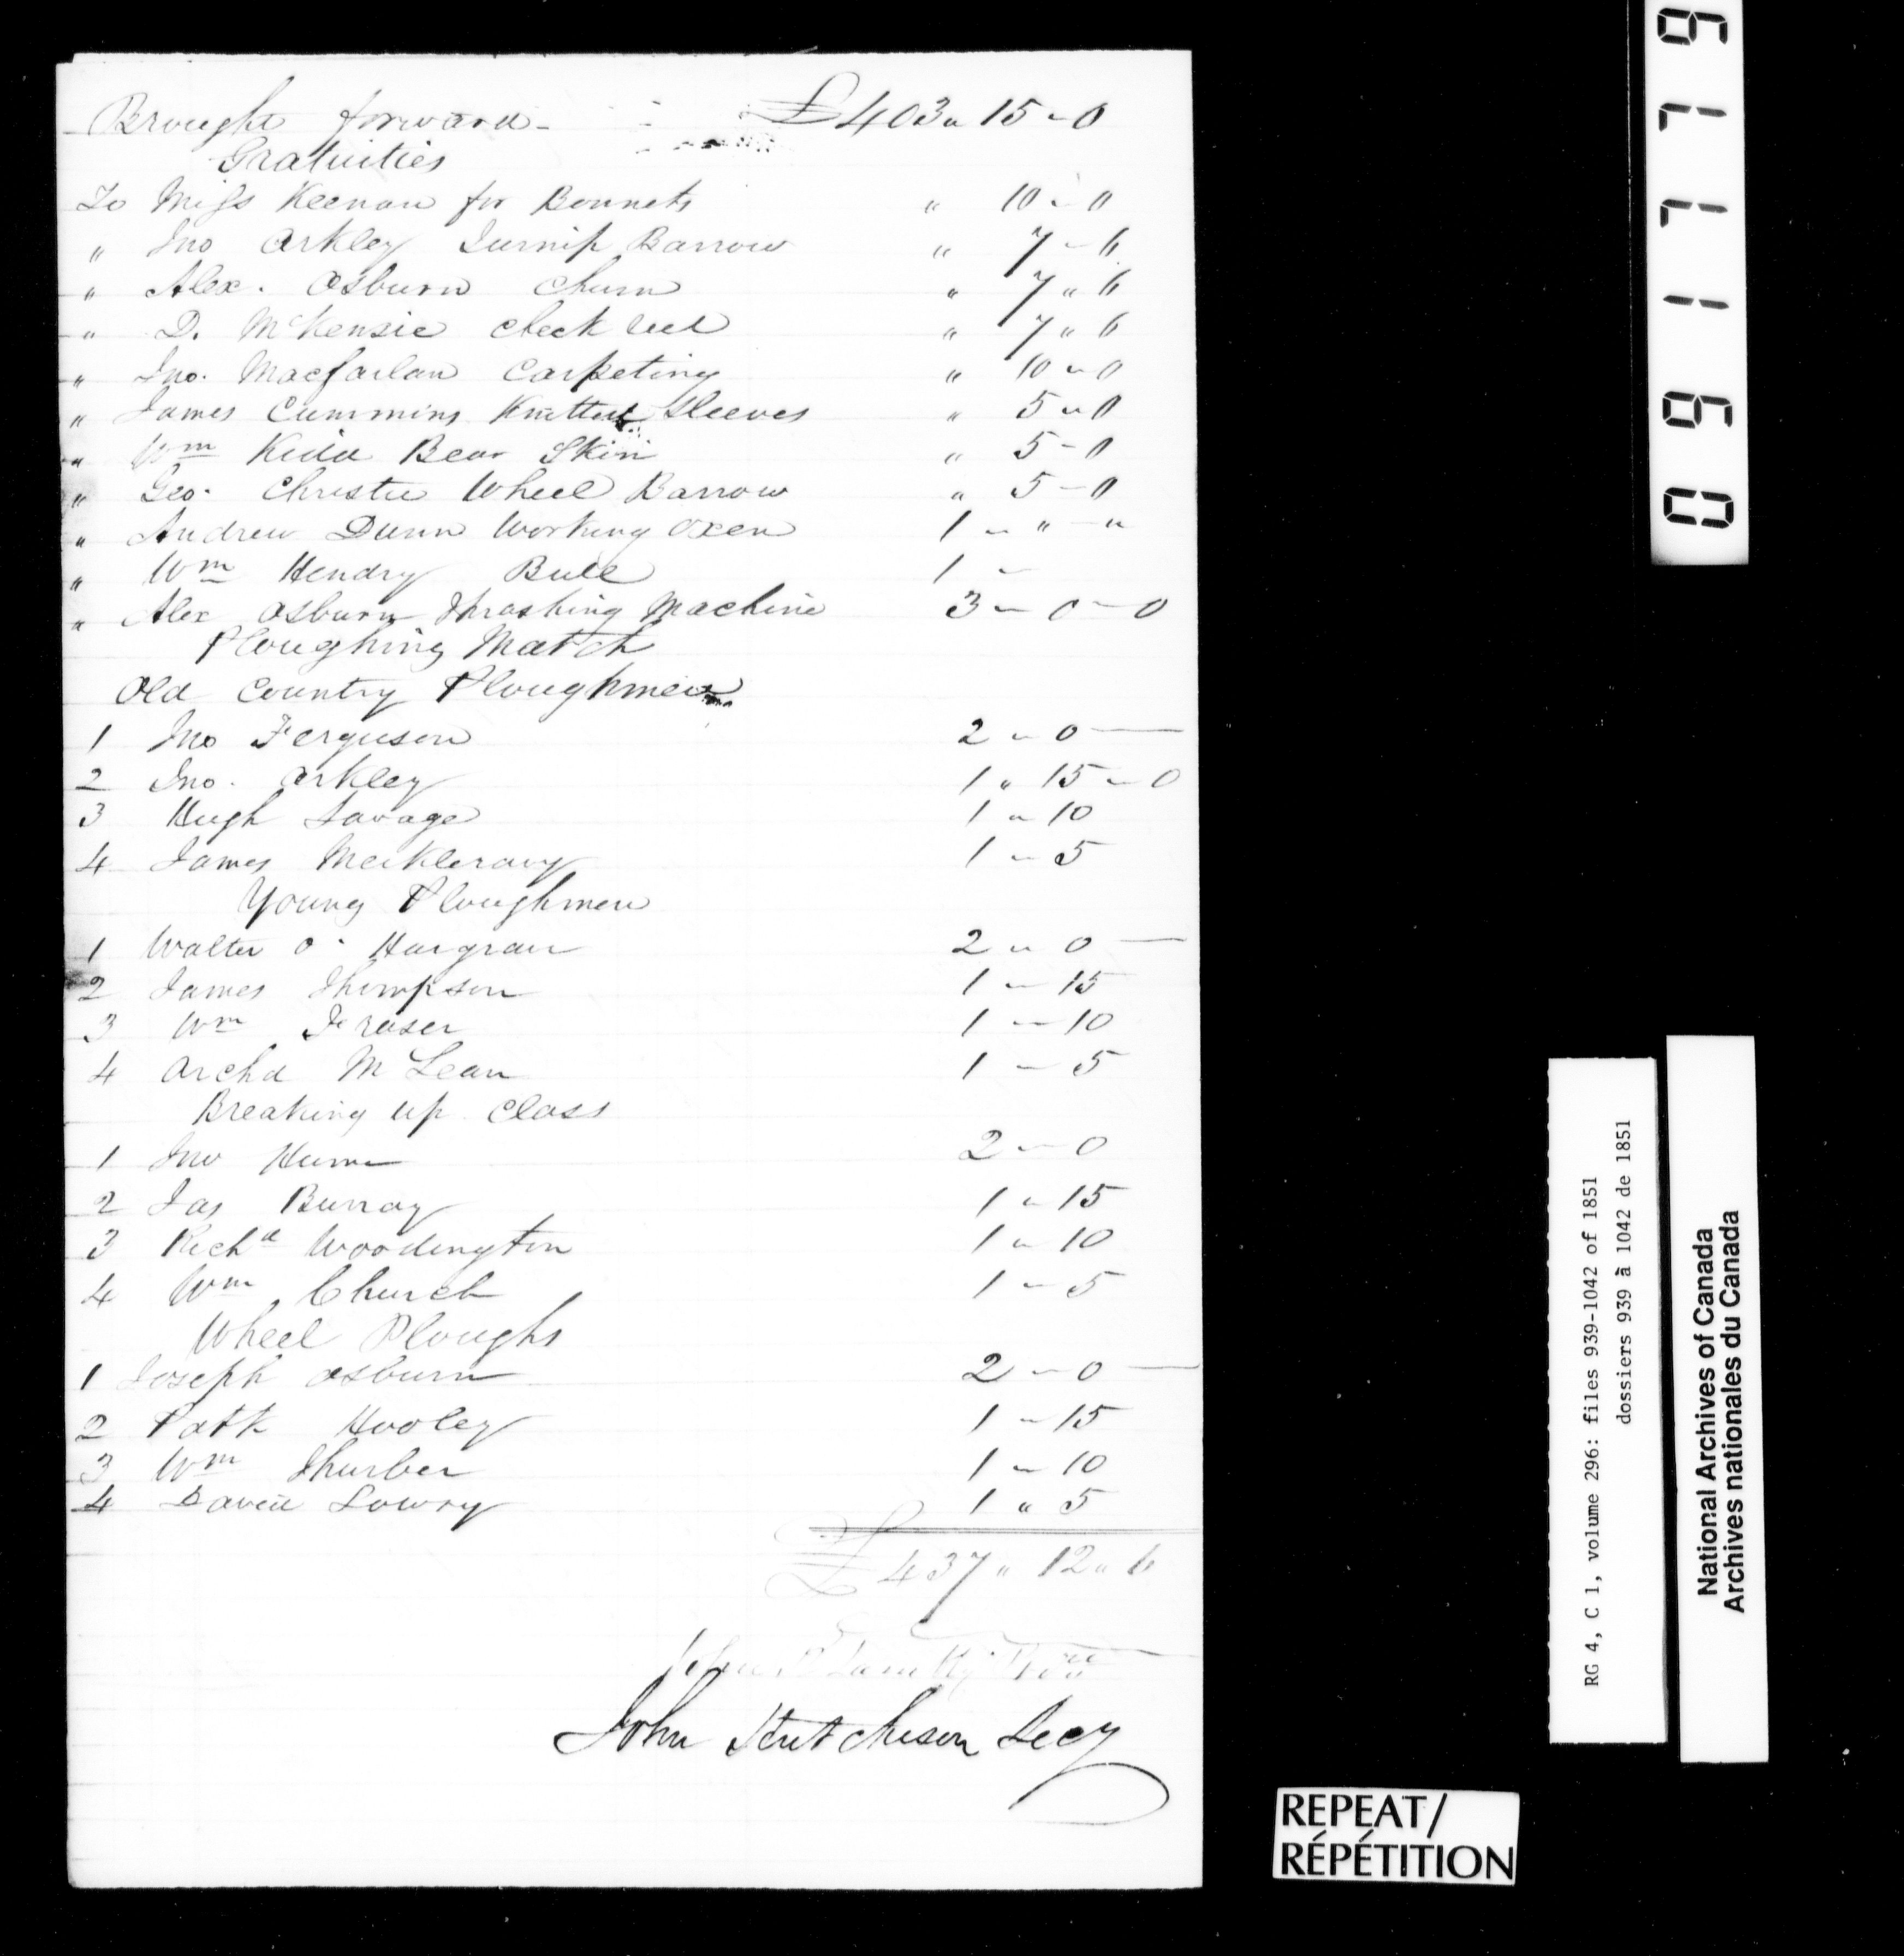 Brought forward - £403 " 15 - 0
Gratuities
To Miss Keenan for Bonnets " 10 - 0
" Jno Arkley Turnip Barrow " 7 - 6
" Alex. Osburn Churn " 7 " 6
" D. McKensie check reel " 7 " 6
" Jno. Macfarlan Carpeting " 10 - 0
" James Cummins Knitted Sleeves " 5 " 0
" Wm Kidd Bear Skin " 5 - 0
" Geo. Christie Wheel Barrow " 5 - 0
" Andrew Dunn Working Oxen 1 - " - "
" Wm Hendry Bull 1 -
" Alex Osburn Thrashing Machine 3 - 0 - 0
Ploughing Match
Old Country Ploughmen
1 Jno Ferguson 2 " 0 —
2 Jno. Arkley 1 " 15 - 0
3 Hugh Savage 1 " 10
4 James 1 - 5
Young Ploughmen
1 Walter O. Hargrave 2 " 0 —
2 James Thompson 1 - 15
3 Wm Fraser 1 - 10
4 Archd McLean 1 - 5
Breaking up Class
1 Jno Hume 2 - 0
2 Jas 1 " 15
3 Richd Woodington 1 " 10
4 Wm Church 1 - 5
Wheel Ploughs
1 Joseph Osburn 2 - 0 —
2 Patk Hooley 1 - 15
3 Wm Thurber 1 - 10
4 David Lowry 1 " 5
£437 " 12 " 6
John
John Hutchison Secy
REPEAT/
RÉPÉTITION
RG 4, C 1, volume 296: files 939-1042 of 1851
dossiers 939 à 1042 de 1851
National Archives of Canada
Archives nationales du Canada